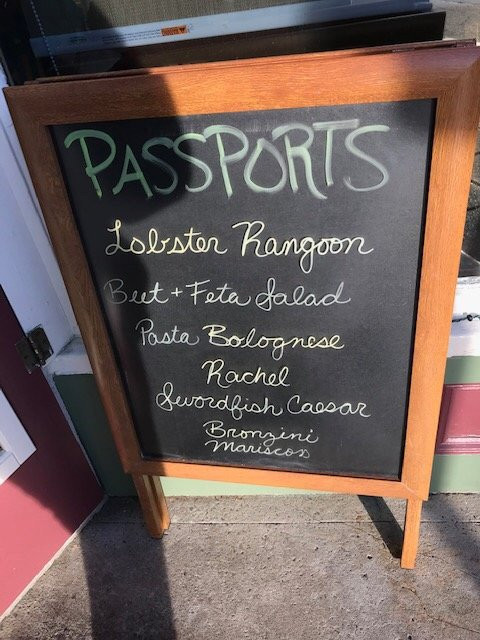 PASSPORTS
Lobster Rangoon
Beet + Feta Salad
Pasta Bolognese
Rachel
Swordfish Caesar
Bronzini
Mariscos